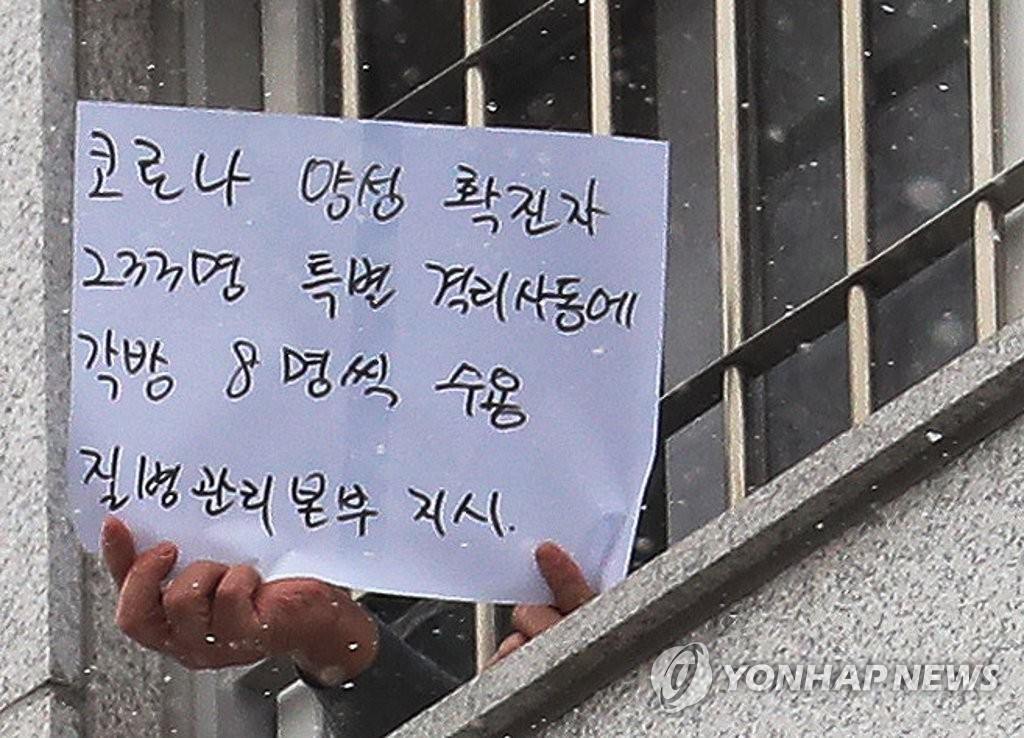 코로나 양성 확진자
233명 특별 격리사동에
각방 8명씩 수용
질병관리본부 지시.
YONHAP NEWS